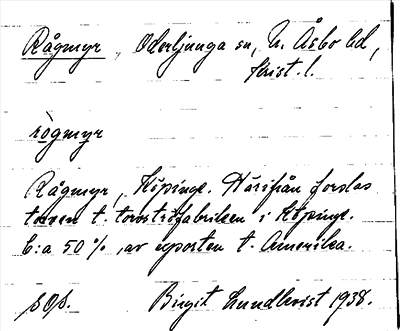 Rågmyr, Oderljunga sn, N. Åsbo hd,
Krist. l.
rògmyr
Rågmyr, Köpinge. Härifrån forslas
torven t. torvströfabriken i Köpinge.
C:a 50%, av exporten t. Amerika.
sOs. Birgit Lundkvist 1938.